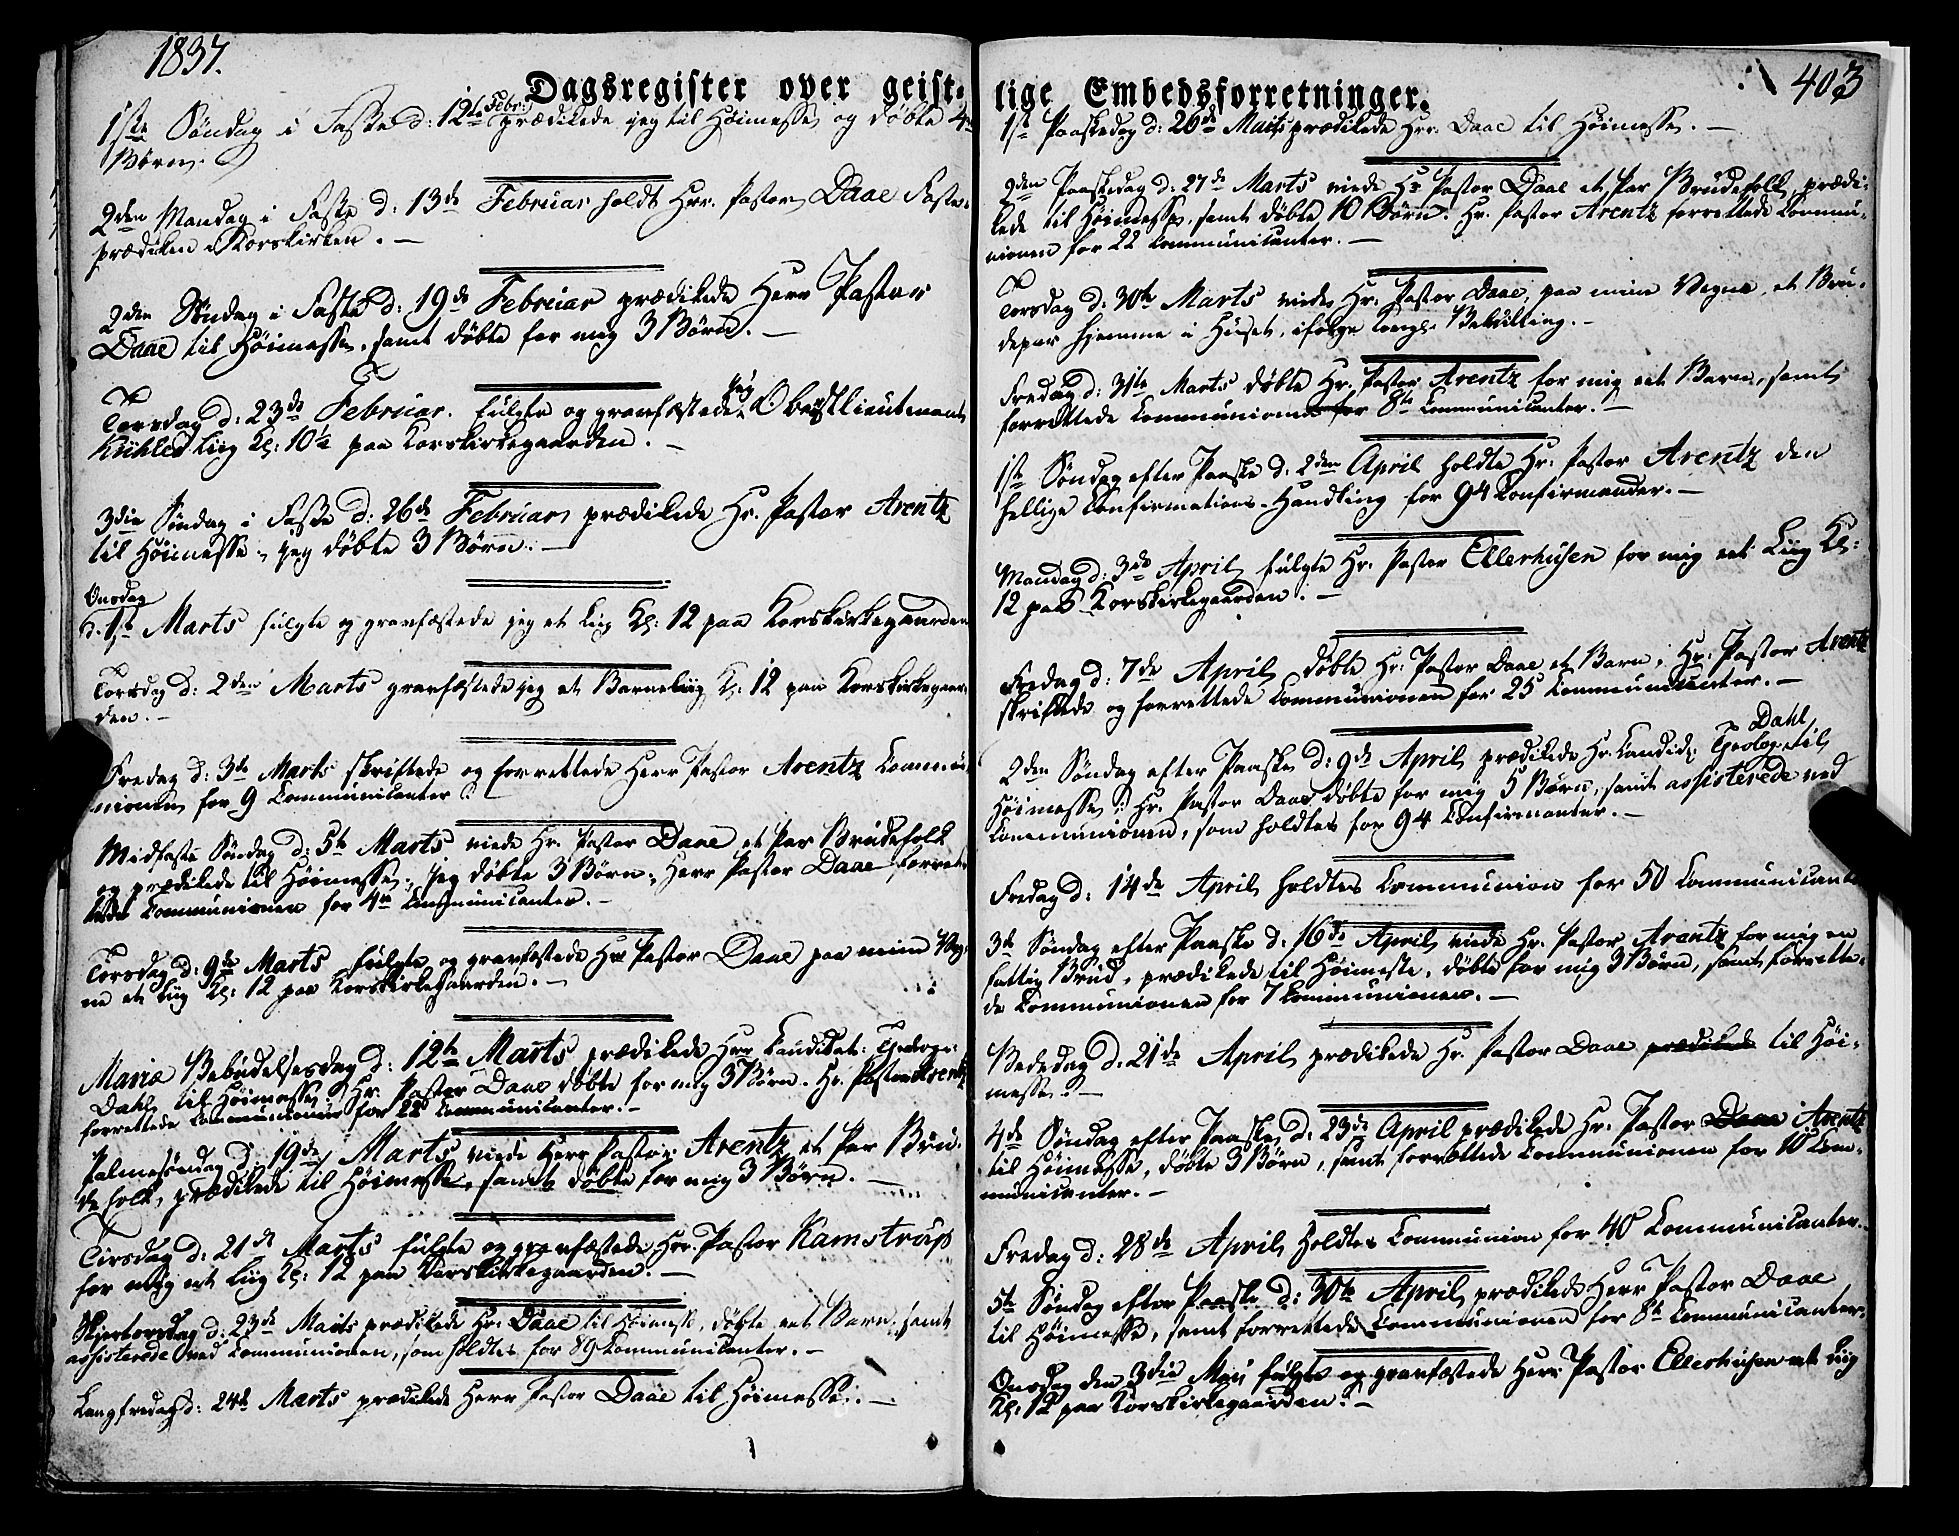 1837.
Dagsregister over geist-
1ste Søndag i Faste d: 12te Febr: prædikede jeg til Høimesse og døbte 4re
Børn.
2den Mandag i Faste d: 13de Februar holdt Hrr. Pastor Daae Faste-
prædiken i Korskirken. —
2den Søndag i Faste d: 19de Februar prædikede Herr Pastor
Daae til Høimesse, samt døbte for mig 3 Børn. —
Torsdag d: 23de Februar fulgte og gravfæstede jeg Oberstlieutenant
Kühles Liig Kl: 10½ paa Korskirkegaarden. —
3die Søndag i Faste d: 26de Februar prædikede Hr. Pastor Arentz
til Høimesse, jeg døbte 3 Børn. —
Onsdag
d. 1ste Marts fulgte og gravfæstede jeg et Liig Kl: 12 paa Korskirkegaarden
Torsdag d: 2den Marts gravfæstede jeg et Barneliig Kl: 12 paa Korskirkegaar-
den. —
Fredag d: 3die Marts skriftede og forrettede Herr Pastor Arentz Commu-
nionen for 9 Communicanter. —
Midfaste Søndag d: 5te Marts viede Hr. Pastor Daae et Par Brudefolk
og prædikede til Høimesse, jeg døbte 3 Børn, Herr Pastor Daae forret-
tede Communionen for 4re Communicanter. —
Torsdag d: 9de Marts fulgte og gravfæstede Hr. Pastor Daae paa mine Veg-
ne et Liig Kl: 12 paa Korskirkegaarden. —
Mariæ Bebudelsesdag d: 12te Marts prædikede Hrr Candidat: Theologi:
Dahl til Høimesse. Hr. Pastor Daae døbte for mig 3 Børn. Hr. Pastor Arentz
forrettede Communionen for 22 Communicanter. —
Palmesøndag d: 19de Marts viede Herr Pastor Arentz et Par Bru-
defolk, prædikede til Høimesse, samt døbte for mig 3 Børn. —
Tirsdag d: 21de Marts fulgte og gravfæstede Hr. Pastor Kamstrup
for mig et Liig Kl: 12 paa Korskirkegaarden. —
Skjertorsdag d: 23de Marts prædikede Hr: Daae til Høimesse, døbte eet Barn, samt
assisterede ved Communionen, som holdtes for 89 Communicanter. —
Langfredag d: 24de Marts prædikede Herr Pastor Daae til Høimesse. —
403
lige Embedsforretninger.
1ste Paaskedag d: 26de Marts prædikede Hrr. Daae til Høimesse. —
2den Paaskedag d: 27de Marts viede Hr Pastor Daae et Par Brudefolk, prædi-
kede til Høimesse, samt døbte 10 Børn. Hr. Pastor Arentz forrettede Commu-
nionen for 22 Communicanter. —
Torsdag d: 30te Marts viede Hr: Pastor Daae, paa mine Vegne, et Bru-
depar hjemme i Huset, ifølge Kongl: Bevilling. —
Fredag d: 31te Marts døbte Hr. Pastor Arentz for mig eet Barn, samt
forrettede Communionen for 8te Communicanter. —
1ste Søndag efter Paaske d: 2den April holdte Hr: Pastor Arentz den
hellige Confirmations-Handling for 94 Confirmander. —
Mandag d: 3die April fulgte Hr: Pastor Ellerhusen for mig eet Liig Kl:
12 paa Korskirkegaarden. —
Fredag d: 7de April døbte Hr: Pastor Daae et Barn, Hr: Pastor Arentz
skriftede og forrettede Communionen for 25 Communicanter. —
2den Søndag efter Paaske d: 9de April prædikede Hr. Candid: Theolog: Dahl til
Høimesse; Hr. Pastor Daae døbte for mig 5 Børn, samt assisterede ved
Communionen, som holdtes for 94 Confirmanter. —
Fredag d: 14de April holdtes Communion for 50 Communicanter
3de Søndag efter Paaske d: 16de April viede Hr. Pastor Arentz for mig en
fattig Brud, prædikede til Høimesse, døbte for mig 3 Børn, samt forrette-
de Communionen for 7 Communionen. —
Bededag d. 21de April prædikede Hr. Pastor Daae prædikede til Høi-
messe. —
4de Søndag efter Paaske d: 23de April prædikede Hr. Pastor Daae Arentz
til Høimesse, døbte 3 Børn, samt forrettede Communionen for 10 Com-
municanter. —
Fredag d: 28de April holdtes Communion for 40 Communicanter.
5te Søndag efter Paaske d: 30te April prædikede Herr Pastor Daae
til Høimesse, samt forrettede Communionen for 8te Communicanter.
Onsdag den 3die Maj fulgte og gravfæstede Herr Pastor Ellerhusen et Liig
Kl: 12 paa Korskirkegaarden. —